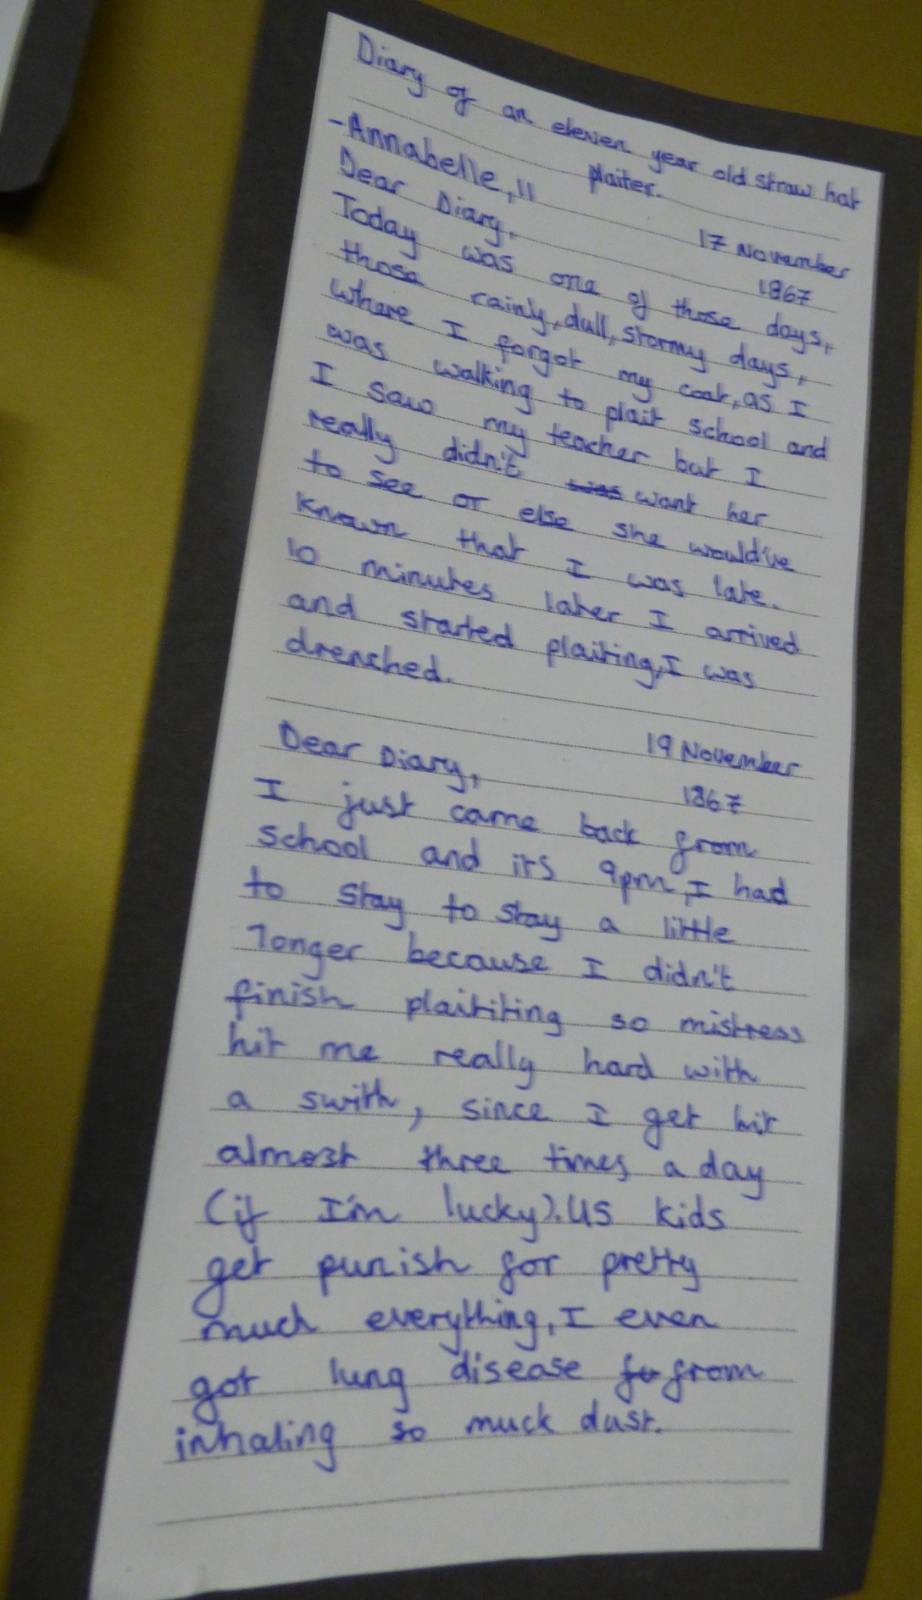 Diary of an eleven year old straw hat
plaiter.
-Annabelle, 11
17 November
1867
Dear Diary,
Today was one of those days,
those rainly, dull, stormy days,
where I forgot my coat, as I
was walking to plait school and
I saw my teacher but I
really didn't was want her
to see or else she would've
known that I was late.
10 minutes later I arrived
and started plaiting, I was
drenched.
19 November
1867
Dear Diary,
I just came back from
school and its 9pm, I had
to stay to stay a little
longer because I didn't
finish plaititing so mistress
hit me really hard with
a swith, since I get hit
almost three times a day
(if I'm lucky). Us kids
get punish for pretty
much everything, I even
got lung disease fr from
inhaling so muck dust.